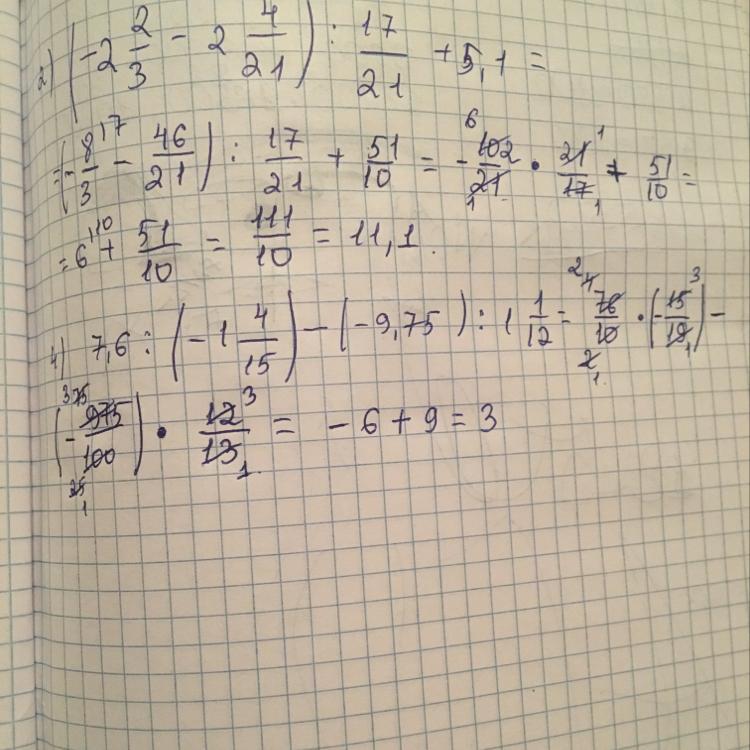 2) (-2 2/3 - 2 4/21) : 17/21 + 5,1 =
= (-8/3 17 - 46/21) : 17/21 + 51/10 = - 6 102/21 1 · 21/17 1 1 + 51/10 =
= 6 110 + 51/10 = 111/10 = 11,1.
4) 7,6 : (-1 4/15) - (-9,75) : 1 1/12 = 2 4 76/10 2 1 · (-15/19 3 1) -
(- 3 75 975/100 25 1) · 12/13 3 1 = -6 + 9 = 3